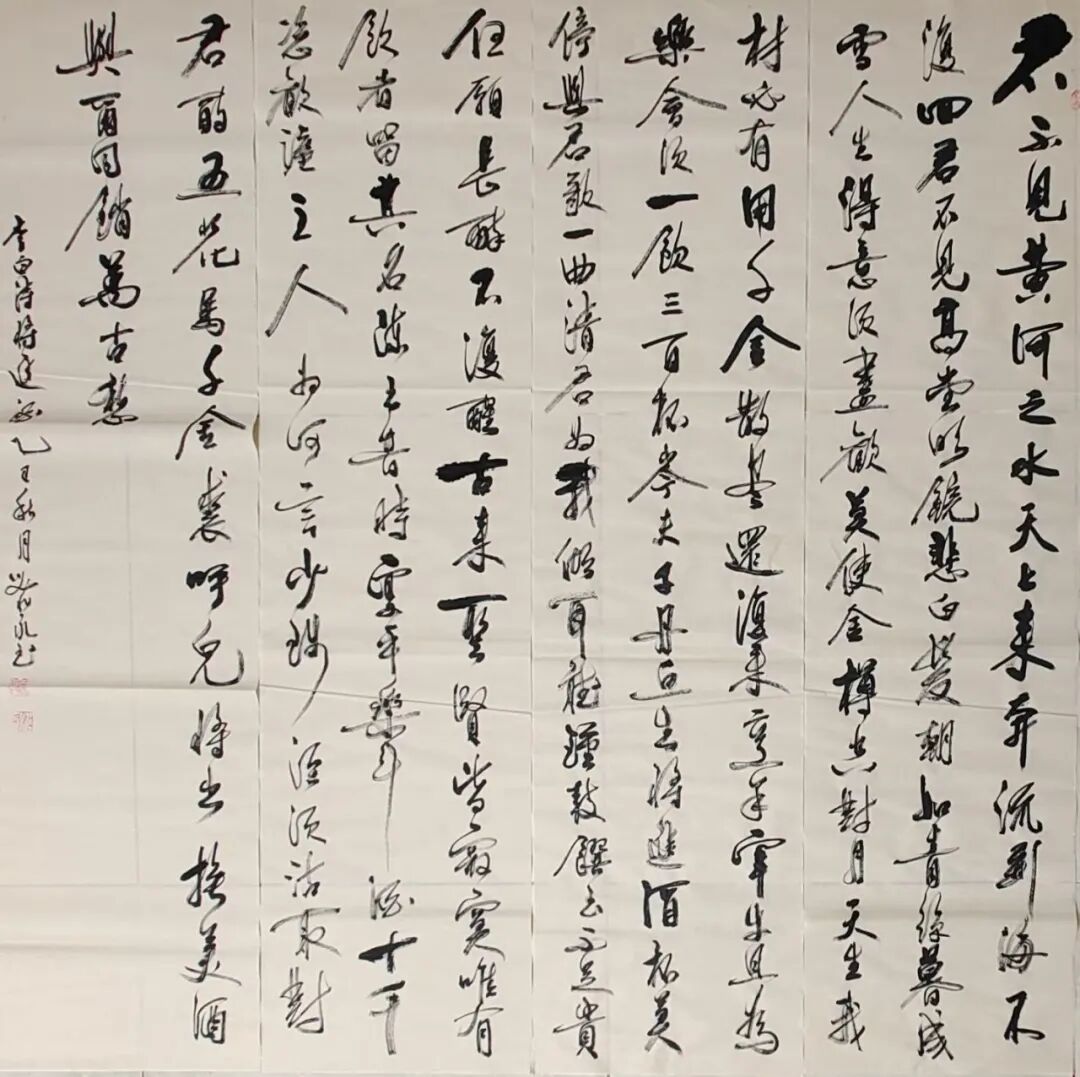 君不見黄河之水天上来奔流到海不
復回君不見高堂明鏡悲白髮朝如青絲暮成
雪人生得意須盡歡莫使金樽空對月天生我
材必有用千金散盡還復来烹羊宰牛且為
樂會須一飲三百杯岑夫子丹丘生將進酒杯莫
停與君歌一曲請君為我傾耳聽鐘鼓饌玉不足貴
但願長醉不復醒古来聖賢皆寂寞唯有
飲者留其名陳王昔時宴平樂斗酒十千
恣歡謔主人為何言少錢徑須沽取對
君酌五花馬千金裘呼兒將出換美酒
與爾同銷萬古愁
李白詩將進酒